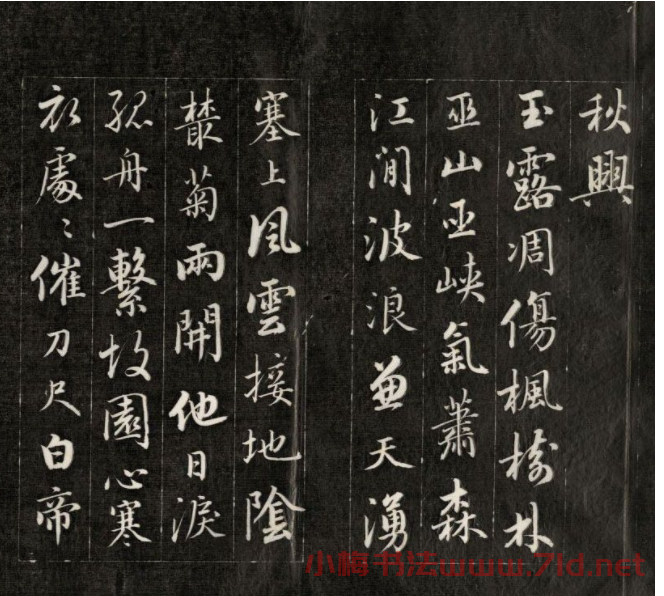 秋興
玉露凋傷楓樹林
巫山巫峽氣蕭森
江間波浪兼天湧
塞上風雲接地陰
叢菊兩開他日淚
孤舟一繫故園心寒
衣處〻催刀尺白帝
小梅书法www.7ld.net